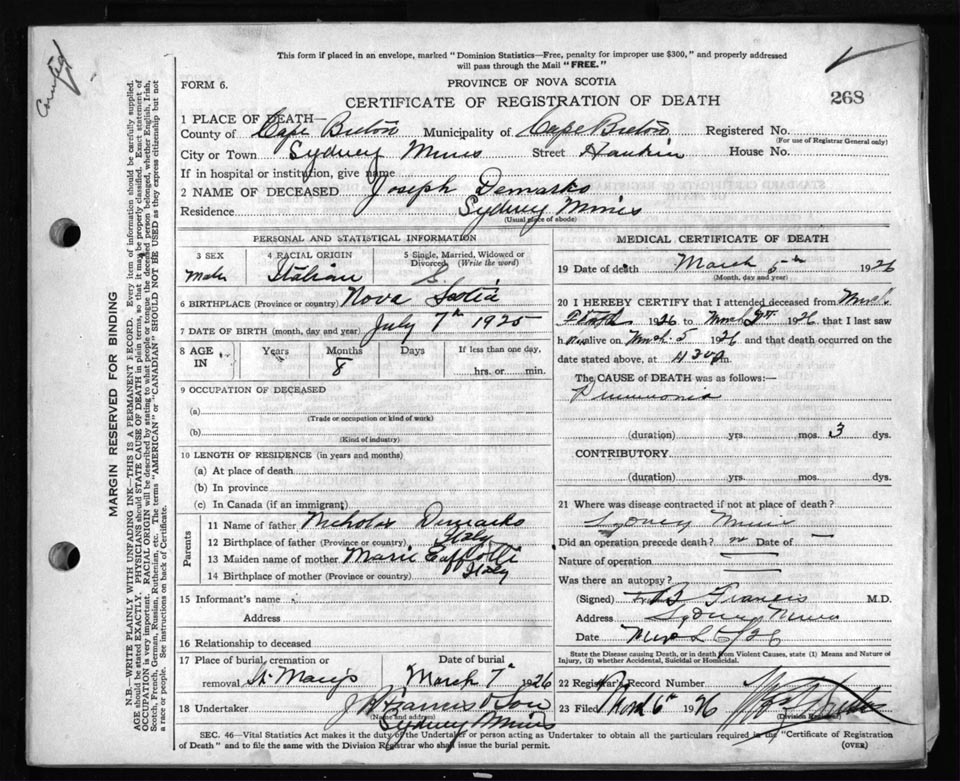 Counted
This form if placed in an envelope, marked "Dominion Statistics—Free, penalty for improper use $300," and properly addressed
will pass through the Mail "FREE."
FORM 6.
PROVINCE OF NOVA SCOTIA
CERTIFICATE OF REGISTRATION OF DEATH
268
1 PLACE OF DEATH—
County of Cape Breton Municipality of Cape Breton Registered No.
(For use of Registrar General only)
City or Town Sydney Mines Street Hankin House No.
If in hospital or institution, give name
2 NAME OF DECEASED Joseph Demarko
Residence Sydney Mines
(Usual place of abode)
PERSONAL AND STATISTICAL INFORMATION
3 SEX 4 RACIAL ORIGIN 5 Single, Married, Widowed or Divorced (Write the word)
Male Italian S.
6 BIRTHPLACE (Province or country) Nova Scotia
7 DATE OF BIRTH (month, day and year) July 7th 1925
8 AGE IN Years Months Days If less than one day,
8 hrs. or min.
9 OCCUPATION OF DECEASED
(a)
(Trade or occupation or kind of work)
(b)
(Kind of industry)
10 LENGTH OF RESIDENCE (in years and months)
(a) At place of death
(b) In province
(c) In Canada (if an immigrant)
Parents
11 Name of father Nicholas Demarko
12 Birthplace of father (Province or country) Italy
13 Maiden name of mother Marie
14 Birthplace of mother (Province or country) Italy
15 Informant's name
Address
16 Relationship to deceased
17 Place of burial, cremation or removal St. Mary's
Date of burial March 7th 1926
18 Undertaker & Son
(Name and address)
Sydney Mines
MEDICAL CERTIFICATE OF DEATH
19 Date of death March 5th 1926
(Month, day and year)
20 I HEREBY CERTIFY that I attended deceased from March
1926 to March 1926, that I last saw
h alive on March 5 1926 and that death occurred on the
date stated above, at 4 30 p m.
The CAUSE OF DEATH was as follows:—
Pneumonia
(duration) yrs. mos. 3 dys.
CONTRIBUTORY
(duration) yrs. mos. dys.
21 Where was disease contracted if not at place of death?
Sydney Mines
Did an operation precede death? n Date of —
Nature of operation
Was there an autopsy?
(Signed) B Francis M.D.
Address Sydney Mines
Date
State the Disease causing Death, or in death from Violent Causes, state (1) Means and Nature of
Injury, (2) whether Accidental, Suicidal or Homicidal.
22 Record Number
23 Filed March 6th 1926
(Division Registrar)
SEC. 46—Vital Statistics Act makes it the duty of the Undertaker or person acting as Undertaker to obtain all the particulars required in the "Certificate of Registration
of Death" and to file the same with the Division Registrar who shall issue the burial permit.
(OVER)
MARGIN RESERVED FOR BINDING
N.B.—WRITE PLAINLY WITH UNFADING INK—THIS IS A PERMANENT RECORD. Every item of information should be carefully supplied.
AGE should be stated EXACTLY. PHYSICIANS should STATE CAUSE OF DEATH in plain terms, so that it may be properly classified. Exact statement of
OCCUPATION is very important. RACIAL ORIGIN will be described by stating to what people or tongue the deceased person belonged, whether English, Irish,
Scotch, French, German, Russian, Ruthenian, etc. The terms "AMERICAN" or "CANADIAN" SHOULD NOT BE USED as they express citizenship but not
a race or people. See instructions on back of Certificate.